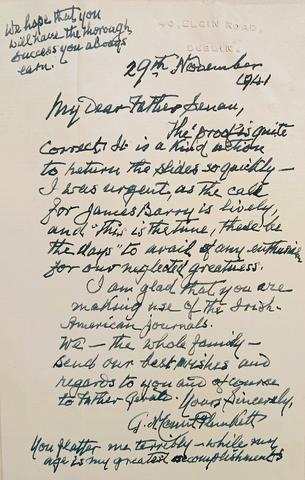 We hope that you
will have the thorough
success you always
earn.
40, ELGIN ROAD,
DUBLIN.
29th November
1941
My Dear Father Senan,
The "proof" is quite
correct. It is a kind action
to return the slides so quickly—
I was urgent, as the call
for James Barry is lively,
and "this is the time, these be
the days" to avail of any enthusiasm
for our neglected greatness.
I am glad that you are
making use of the Irish-
American Journals.
We — the whole family —
send our best wishes and
regards to you and of course
to Father
Yours Sincerely,
G. N. Count Plunkett
You flatter me terribly — while my
age is my greatest accomplishment